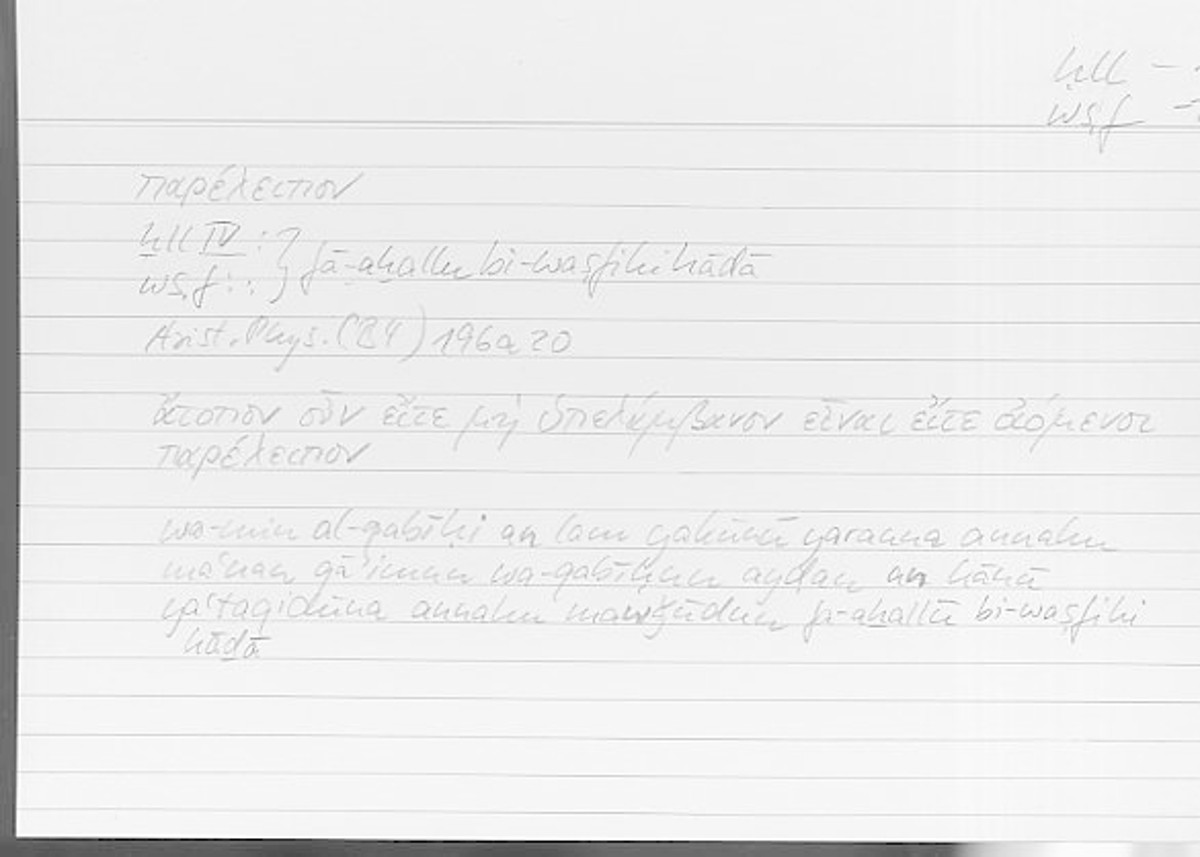 ḫll –
wṣf –
παρέλειπον
ḫll IV : } fā-aḫallu bi-waṣfihi hāḏā
wṣf : :
Arist. Phys. (B4) 196a20
ἄτοπον οὖν εἴτε μὴ ὑπελάμβανον εἶναι εἴτε οἰόμενοι
παρέλειπον
wa-min al-qabīḥi an lam yakūnū yarauna annahu
maʿnan qāʾimun wa-qabīḥun ayḍan an kānū
yaʿtaqidūna annahu mawǧūdun fa-aḫallū bi-waṣfihi
hāḏā